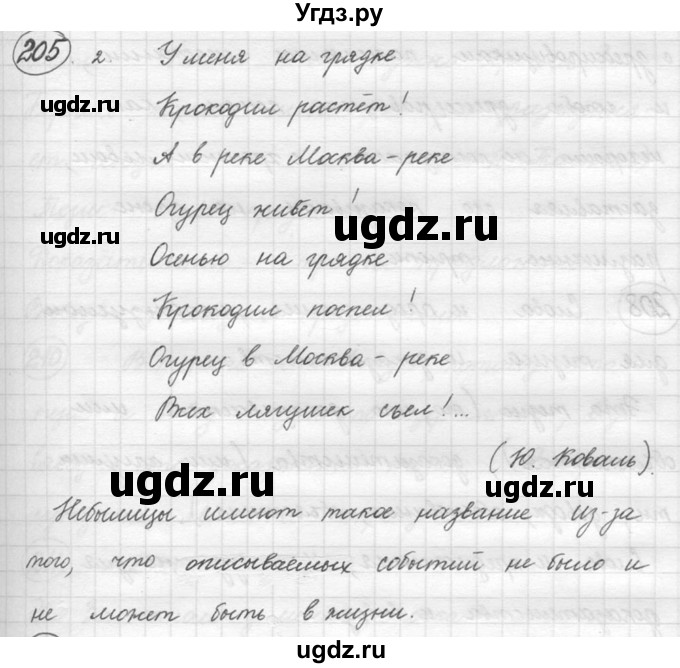 Угдз.ру
205. 2. У меня на грядке
Крокодил растёт!
ugdz.ru
ugdz.ru
А в реке Москва-реке
Огурец живёт!
ugdz.ru
ugdz.ru
Осенью на грядке
Крокодил поспел!
Огурец в Москва-реке
Всех лягушек съел!...
(Ю. Коваль)
ugdz.ru
ugdz.ru
Небылицы имеют такое название из-за
того, что описываемых событий не было и
не может быть в жизни.
ugdz.ru
ugdz.ru